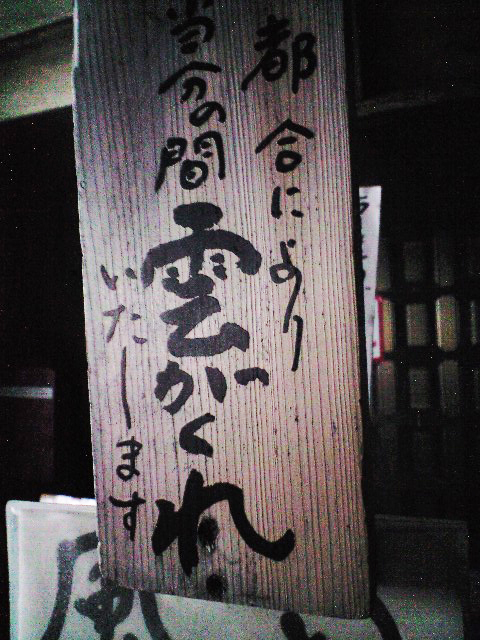 都合により
当分の間
雲がくれ
いたします